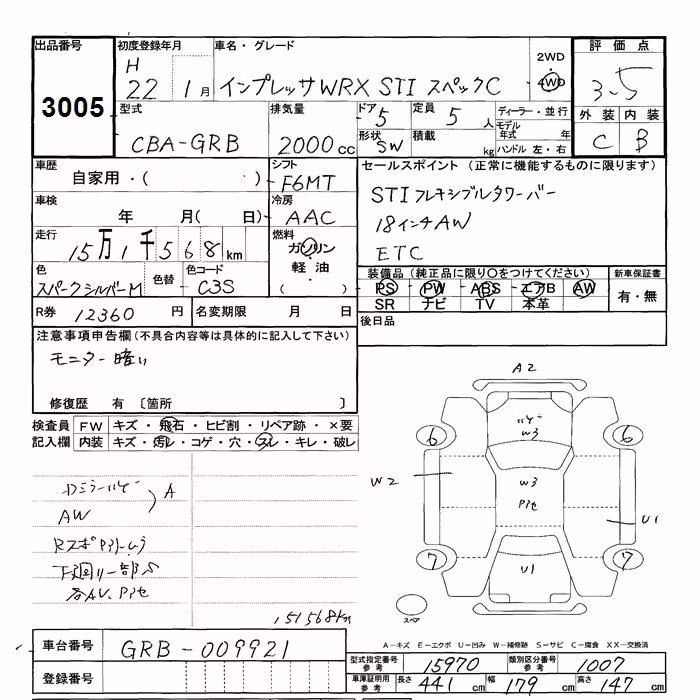 出品番号 初度登録年月 車名・グレード 評価点
3005 H 22 1月 インプレッサWRX STI スペックC 2WD 4WD 3.5
型式 排気量 ドア 定員 ディーラー・並行 外装 内装
CBA-GRB 2000cc 5 5人 モデル年式 年 C B
形状 SW 積載 kg ハンドル 左・右
車歴 シフト セールスポイント (正常に機能するものに限ります)
自家用・( ) F6MT STIフレキシブルタワーバー
車検 冷房
年 月( 日) AAC 18インチAW
走行 燃料
15万1千568km ガソリン ETC
軽油
色 色替 色コード 装備品 (純正品に限り○をつけてください) 新車保証書
スパークシルバーM C3S ( ) PS PW ABS エアB AW 有・無
SR ナビ TV 本革
R券 12360円 名変期限 月 日 後日品
注意事項申告欄(不具合内容等は具体的に記入して下さい)
モニター暗い
修復歴 有 〔箇所 〕
検査員 FW キズ・飛石・ヒビ割・リペア跡・×要
記入欄 内装 キズ・汚レ・コゲ・穴・スレ・キレ・破レ
A2
W3
6 6
A
W2 W3
AW
U1
7 7
U1
下廻り一部S
151568km
スペア
A-キズ E-エクボ U-凹み W-補修跡 S-サビ C-腐食 XX-交換済
車台番号 GRB-009921
型式指定番号 参考 15970 類別区分番号 参考 1007
登録番号 車庫証明用 参考 長さ 441cm 幅 179cm 高さ 147cm